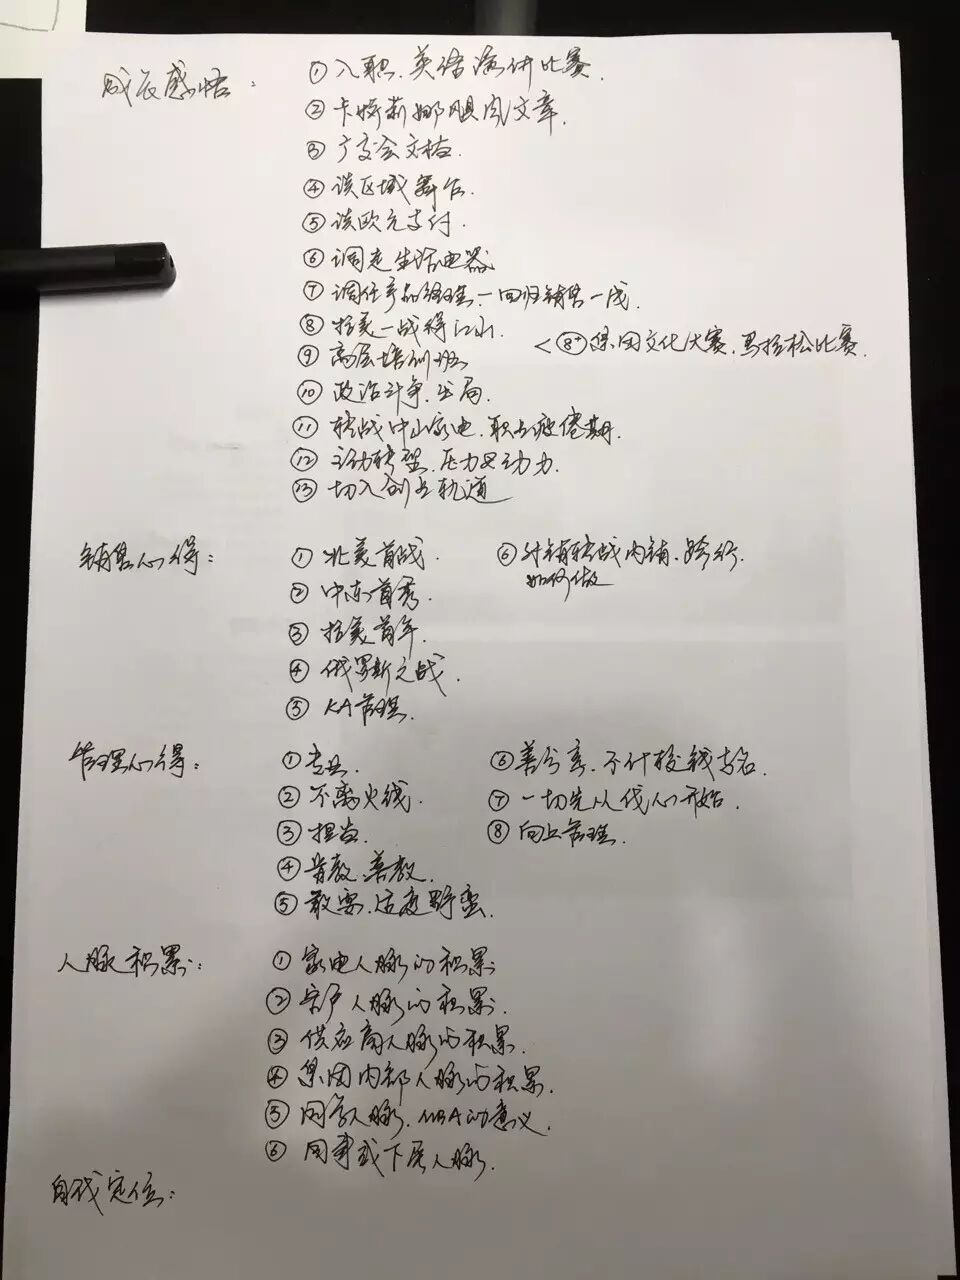 成长感悟：
① 入职、英语演讲比赛.
② 卡特莉娜飓风文章.
③ 广交会文档.
④ 谈区域舞台.
⑤ 谈欧元支付.
⑥ 调走生活电器
⑦ 调任产品经理—回归销售一线.
⑧ 拉美一战得江山.
< ⑧⁺ 集团文化大赛、马拉松比赛.
⑨ 高层培训班
⑩ 政治斗争、出局.
⑪ 转战中山家电、职业疲倦期.
⑫ 主动转型、压力又动力.
⑬ 切入创业轨道
销售心得：
① 北美首战.
② 中东首秀.
③ 拉美首年.
④ 俄罗斯之战.
⑤ KA管理.
⑥ 外销转战内销、跨行.
如何做
管理心得：
① 专业.
② 不离火线.
③ 担当.
④ 肯教、善教.
⑤ 敢要、适度野蛮.
⑥ 善分享、不计较钱与名.
⑦ 一切先从找人开始.
⑧ 向上管理.
人脉积累：
① 家电人脉的积累
② 客户人脉的积累.
③ 供应商人脉的积累.
④ 集团内部人脉的积累.
⑤ 同学人脉、MBA的意义.
⑥ 同事或下属人脉.
自我定位：